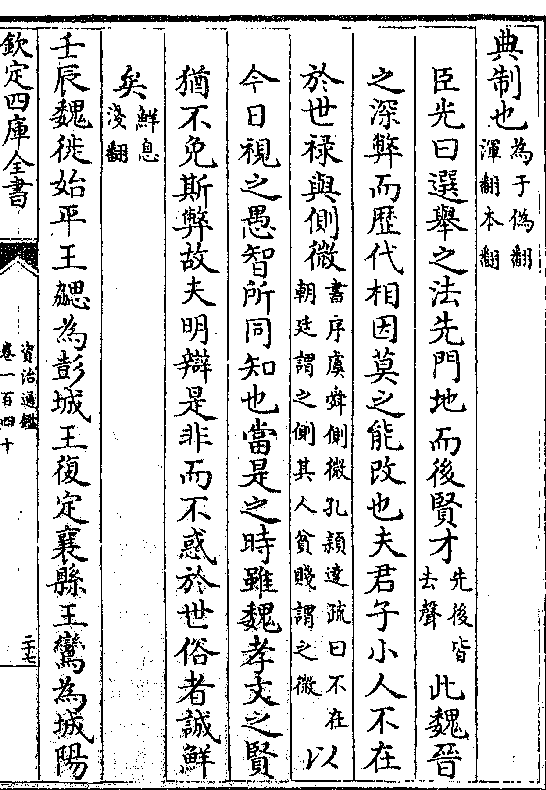 典制也為于偽翻渾翻本翻
臣光曰選舉之法先門地而後賢才先後皆去聲此魏晉
之深弊而歷代相因莫之能改也夫君子小人不在
於世祿與側微書序虞舜側微孔穎達疏曰不在朝廷謂之側其人貧賤謂之微以
今日視之愚智所同知也當是之時雖魏孝文之賢
猶不免斯弊故夫明辯是非而不惑於世俗者誠鮮
矣鮮息淺翻
壬辰魏徙始平王勰為彭城王復定襄縣王鸞為城陽
欽定四庫全書
資治通鑑
卷一百四十
二十七